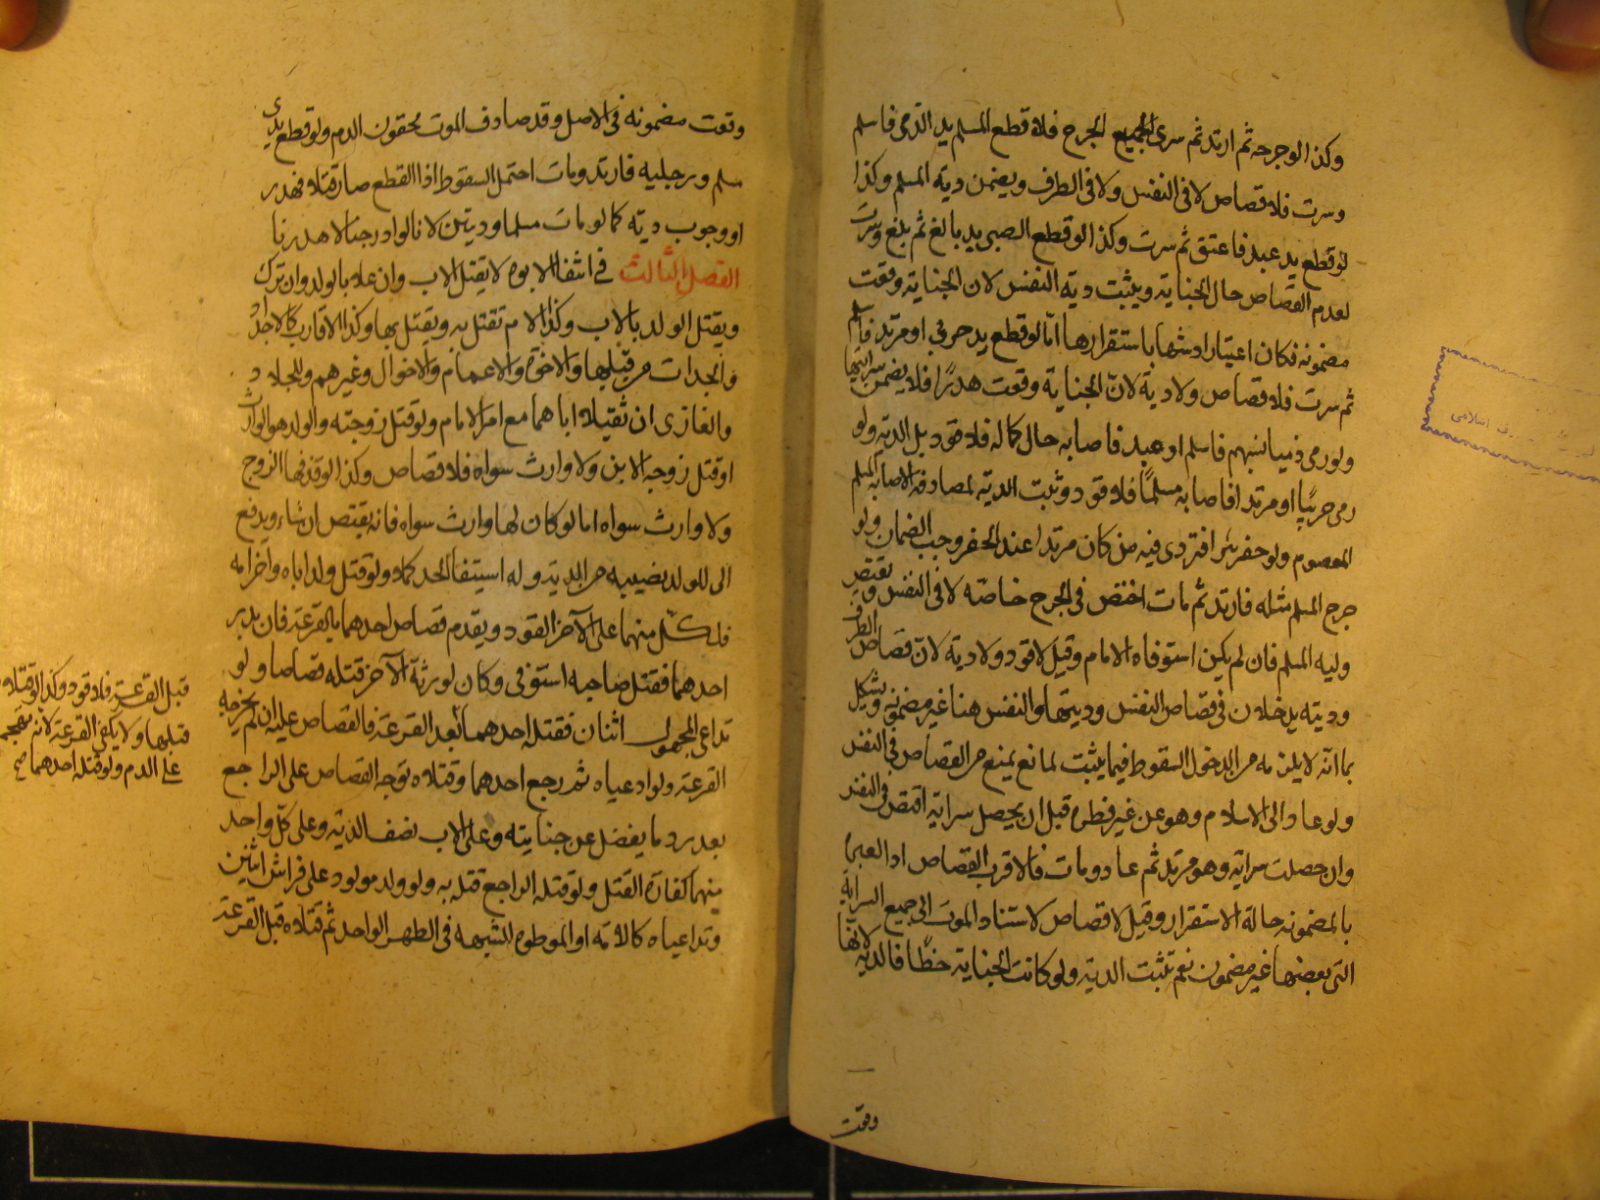 وكذا لو جرحه ثم ارتد ثم سرى الجميع الجرح فلا قطع المسلم يد الذمى فاسلم
وسرت فلا قصاص لا فى النفس ولا فى الطرف ويضمن دية المسلم وكذا
لو قطع يد عبد فاعتق ثم سرت وكذا لو قطع الصبى يد بالغ ثم بلغ وسرت
لعدم القصاص حال الجناية ويثبت دية النفس لان الجناية وقعت
مضمونة فكان اعتبار ارشها باستقرارها امّا لو قطع يد حربى او مرتد فاسلم
ثم سرت فلا قصاص ولا دية لانّ الجناية وقعت هدرًا فلا يضمن سرايتها
ولو رمى ذميا بسهم فاسلم او عبد فاصابه حال كماله فلا قود بل الدية ولو
رمى حربيًا او مرتدا فاصابه مسلمًا فلا قود وثبت الدية لمصادفة الاصابة المسلم
المعصوم ولو حفر بئرا فتردى فيه من كان مرتدا عند الحفر وجب الضمان ولو
جرح المسلم مثله فارتد ثم مات اختص فى الجرح خاصة لا فى النفس ويقتص
وليه المسلم فان لم يكن استوفاه الامام وقيل لا قود ولا دية لانّ قصاص الطرف
وديته يدخلان فى قصاص النفس وديتها والنفس هنا غير مضمونة ويشكل
بما انّه لا يلزم من الدخول السقوط فيما يثبت لمانع يمنع من القصاص فى النفس
ولو عاد الى الاسلام وهو عن غير فطرة قبل ان يحصل سراية اقتص فى النفس
وان حصلت سراية وهو مرتد ثم عاد ومات فالاقرب القصاص اذ العبرة
بالمضمونه حالة الاستقرار وقيل لا قصاص لاستناد الموت الى جميع السراية
التى بعضها غير مضمون نعم تثبت الدية ولو كانت الجناية خطًا فالدية لانها
وقعت
وقعت مضمونة فى الاصل وقد صادف الموت محقون الدم ولو قطع يدى
مسلم ورجليه فارتد ومات احتمل السقوط اذا القطع صار قتلا فهدر
او وجوب دية كما لو مات مسلما وديتين لانا لو ادرجنا لاهدرنا
الفصل الثالث فى انتفا الابوه لا يقتل الاب وان علا بالولد وان ترك
ويقتل الولد بالاب وكذا الام تقتل به ويقتل بها وكذا الاقارب كالاجداد
والجدات من قبلها والاخوة والاعمام والاخوال وغيرهم وللجلاد
والغازى ان يقتلا اباهما مع امر الامام ولو قتل زوجته والولد هو الوارث
او قتل زوجة الابن ولا وارث سواه فلا قصاص وكذا لو قذفها الزوج
ولا وارث سواه اما لو كان لها وارث سواه فانه يقتص ان شاء ويدفع
الى الولد نصيبه من الدية وله استيفا الحد كملا ولو قتل ولد اباه واخر امه
فلكل منهما على الآخر القود ويقدم قصاص احدهما بالقرعة فان بدر
احدهما فقتل صاحبه استوفى وكان لورثة الآخر قتله قصاصا ولو
تداعى المجهول اثنان فقتله احدهما بعد القرعة فالقصاص عليه ان لم يخرجه
القرعة ولو ادعياه ثم رجع احدهما وقتلاه توجه القصاص على الراجع
بعد رد ما يفضل عن جنايته وعلى الاب نصف الدية وعلى كلّ واحد
منهما كفارة القتل ولو قتله الراجع قتل به ولو ولد مولود على فراش اثنين
وتداعياه كالامه او الموطوة بالشبهه فى الطهر الواحد ثم قتلاه قبل القرعة
قبل القرعة فلا قود وكذا لو قتلاه
قتلها ولا يكفى القرعة لانه
على الدم ولو قتله احدهما صح